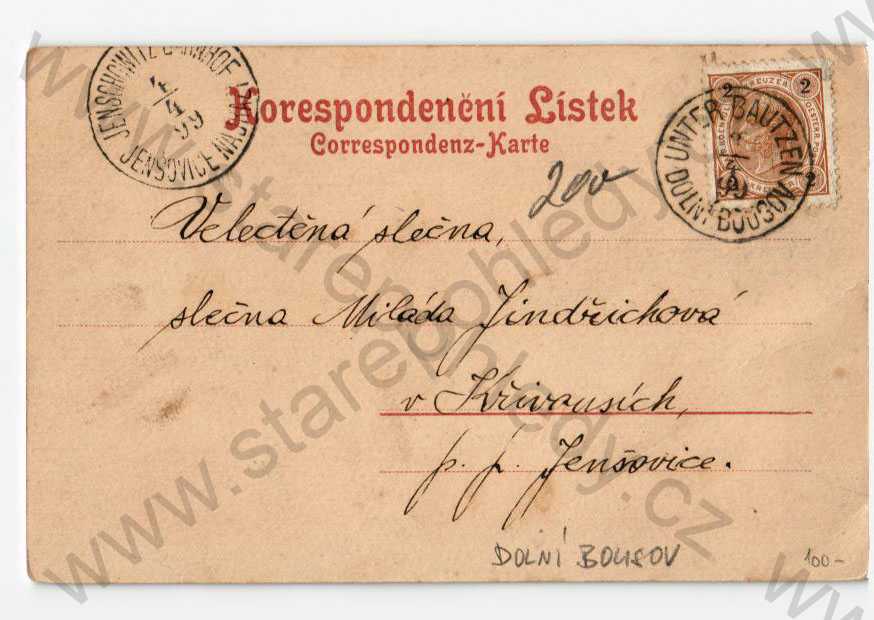 JENSCHOWITZ BAHNHOF
4/4
99
JENSOVICE NÁDR.
Korespondenční Lístek
Correspondenz-Karte
2 KREUZER 2
2 2
UNTER BAUTZEN
4
99
DOLNÍ BOUSOV
200
Velectěná slečna,
slečna Miláda Jindřichová
v Křivousích,
p. p. Jenšovice.
DOLNÍ BOUSOV
100-
www.starepohledy.cz